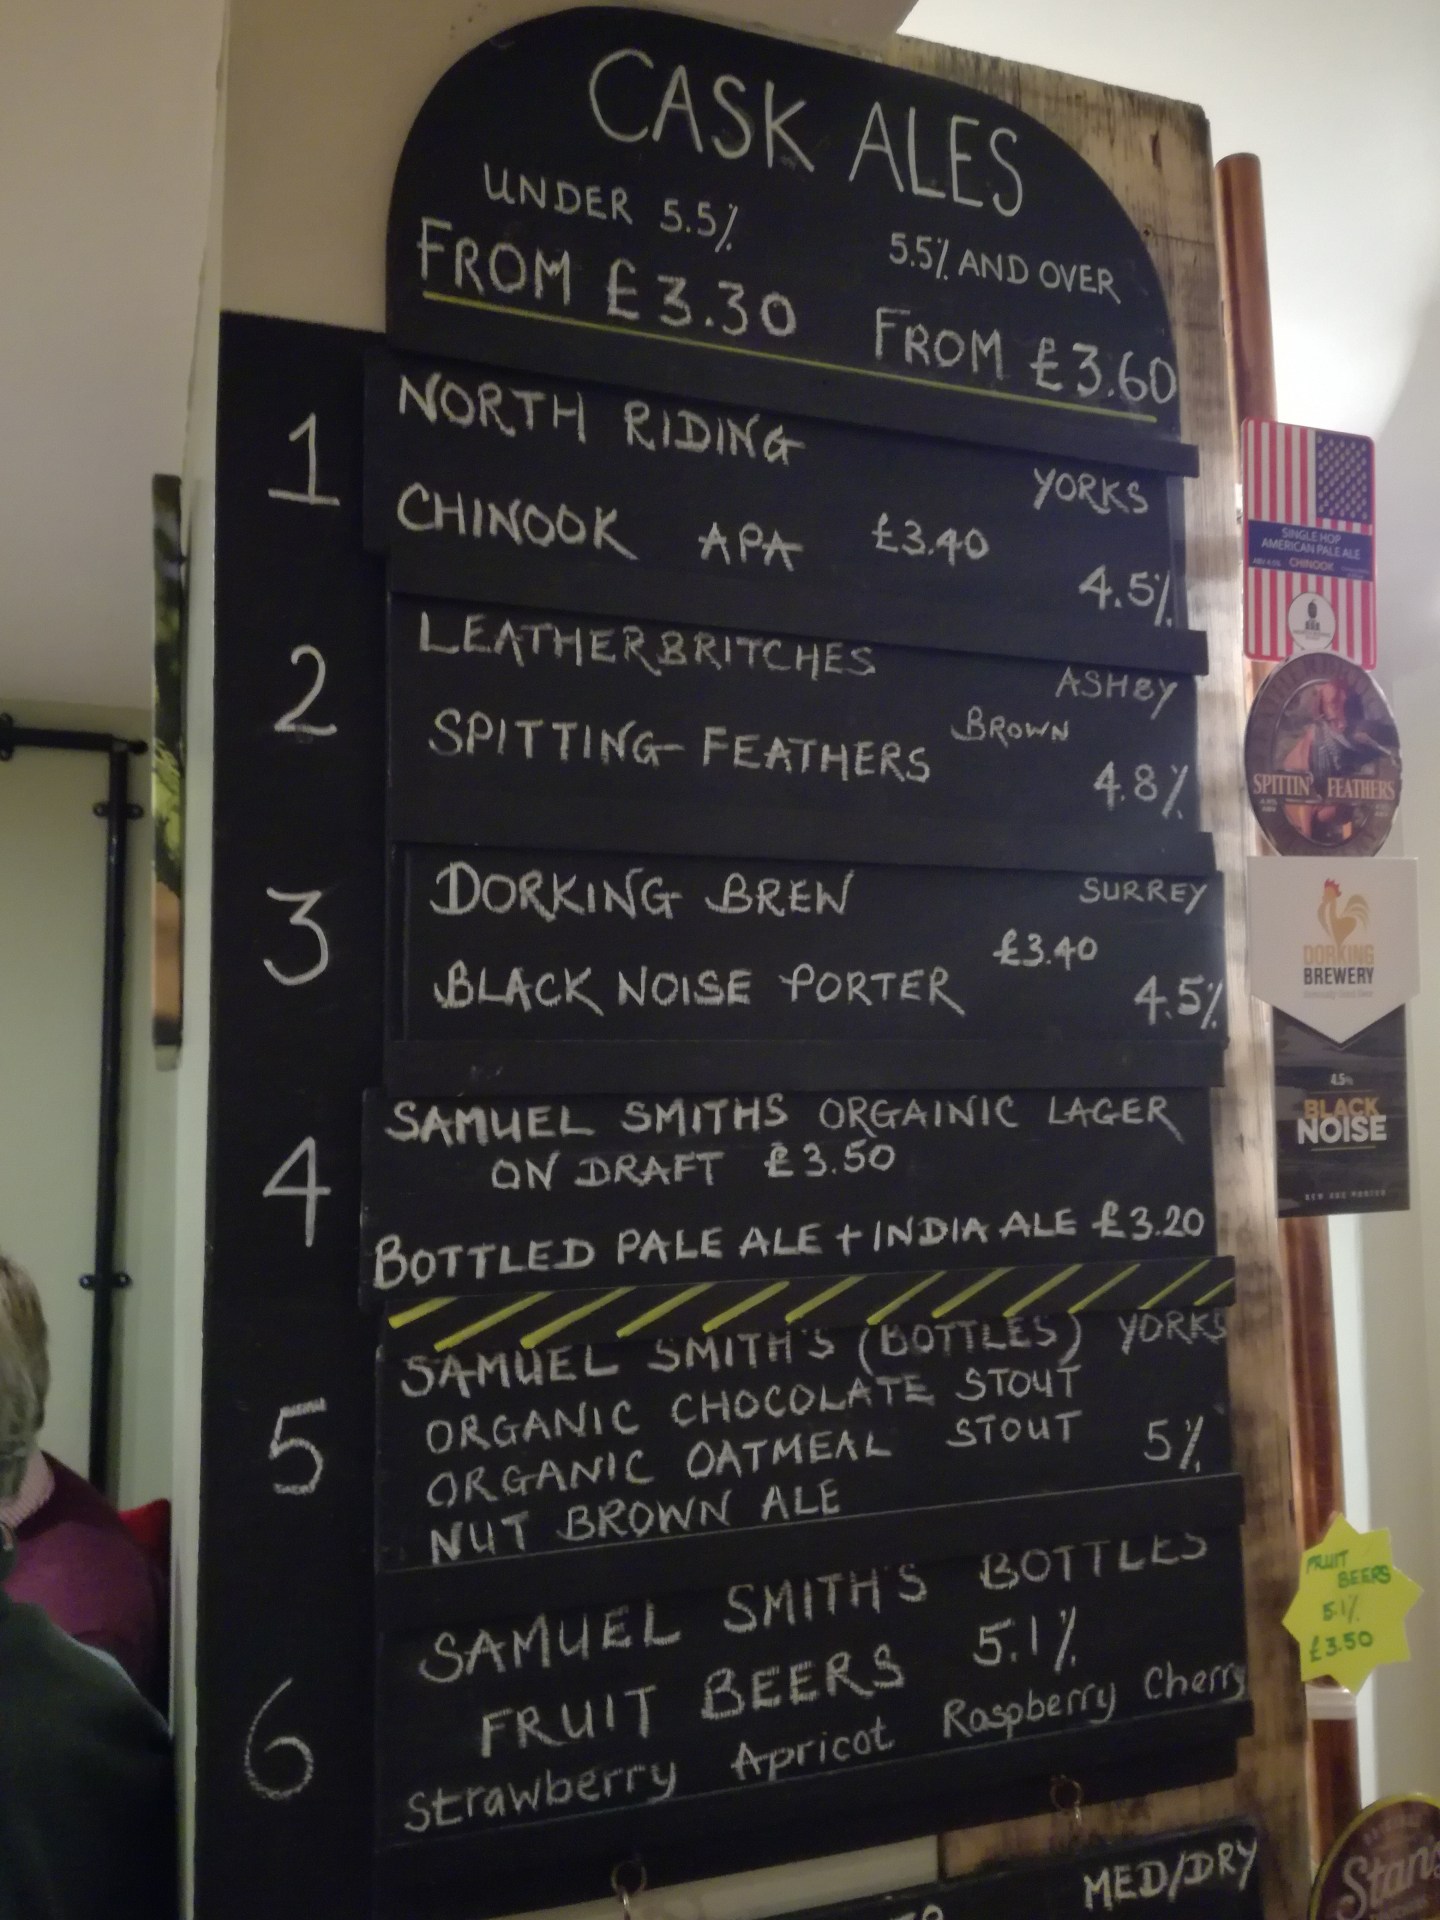 CASK ALES
UNDER 5.5%
FROM £3.30
5.5% AND OVER
FROM £3.60
1
NORTH RIDING
YORKS
CHINOOK APA £3.40
4.5%
2
LEATHERBRITCHES
ASHBY
SPITTING FEATHERS BROWN
4.8%
3
DORKING BREW
SURREY
£3.40
BLACK NOISE PORTER
4.5%
4
SAMUEL SMITHS ORGAINIC LAGER
ON DRAFT £3.50
BOTTLED PALE ALE + INDIA ALE £3.20
5
SAMUEL SMITH'S (BOTTLES) YORKS
ORGANIC CHOCOLATE STOUT
ORGANIC OATMEAL STOUT 5%
NUT BROWN ALE
6
SAMUEL SMITH'S BOTTLES
FRUIT BEERS 5.1%
Strawberry Apricot Raspberry Cherry
MED/DRY
SINGLE HOP
AMERICAN PALE ALE
CHINOOK
SPITTIN' FEATHERS
DORKING
BREWERY
4.5%
BLACK
NOISE
NEW AGE PORTER
FRUIT
BEERS
5.1%
£3.50
Stan's